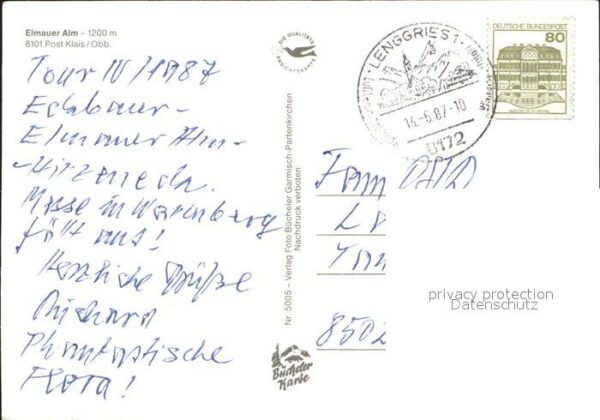 Elmauer Alm – 1200 m
8101 Post Klais/Obb.
DIE QUALITÄTS
ANSICHTSKARTE
Tour IV/1987
Eckbauer-
Elmauer Alm-
Masse in Wamberg
fällt aus!
Herzliche Grüße
Richard
Phantastische
Flora!
Nr. 5005 – Verlag Foto Bücheler Garmisch-Partenkirchen
Nachdruck verboten
Bücheler
Karte
LENGGRIES 1
14.-6.87-10
8172
DEUTSCHE BUNDESPOST
80
Fam
850
privacy protection
Datenschutz